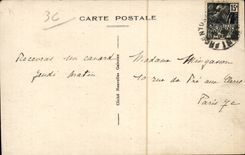 36
CARTE POSTALE
15
Recevras un canard
jeudi matin
Madame
10 rue de Pré aux Clercs
Paris 7e
Cliché Nouvelles Galeries